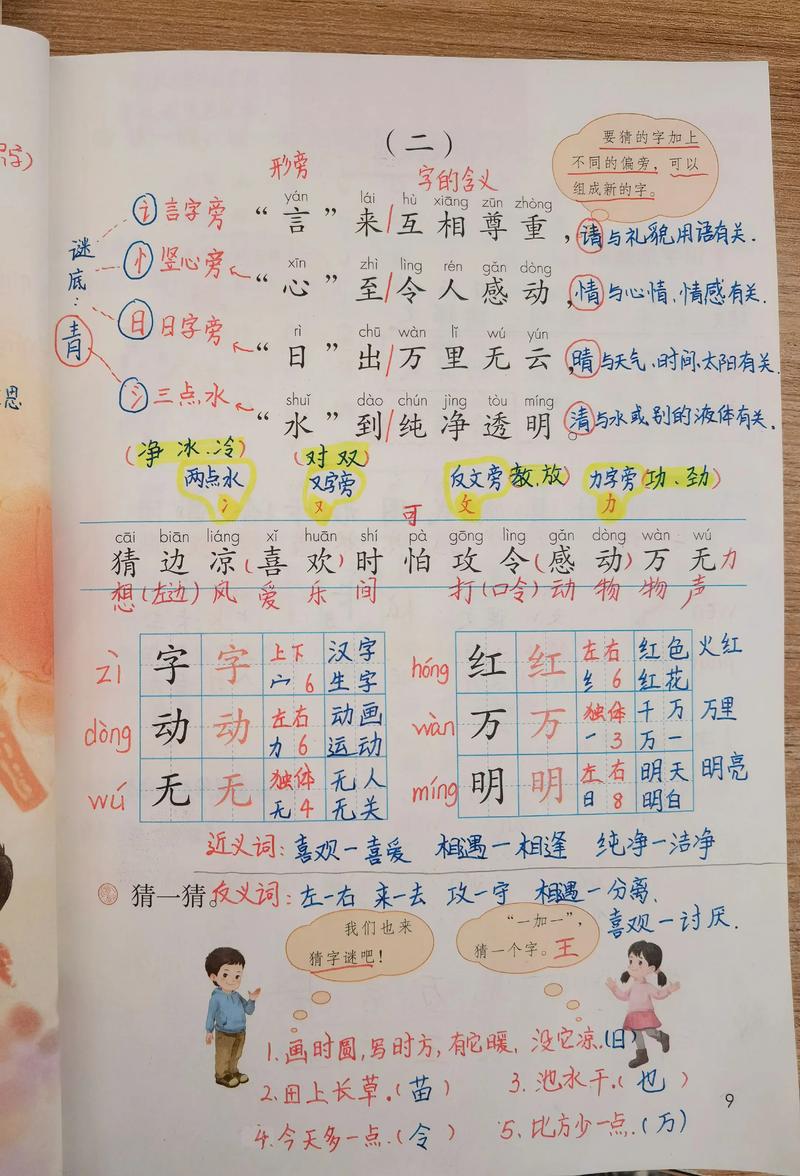 （二）
要猜的字加上
不同的偏旁，可以
组成新的字。
形旁
字的含义
谜底：青
yán lái hù xiāng zūn zhòng
讠言字旁 “言”来/互相尊重，请与礼貌用语有关.
xīn zhì lìng rén gǎn dòng
忄竖心旁 “心”至/令人感动，情与心情、情感有关.
rì chū wàn lǐ wú yún
日日字旁 “日”出/万里无云，晴与天气、时间、太阳有关.
shuǐ dào chún jìng tòu míng
氵三点水 “水”到/纯净透明。清与水或别的液体有关.
(净 冰、冷) (对 双)
两点水 又字旁 反文旁 教、放 力字旁 (功、劲)
冫 又 攵 力
可
cāi biān liáng xǐ huān shí pà gōng lìng gǎn dòng wàn wú
猜边凉(喜欢)时怕攻令(感动)万无力
想(左边)风 爱 乐 间 打(口令)动 物 物 声
zì 字 字 上下 汉字
宀 6 生字
dòng 动 动 左右 动画
力 6 运动
wú 无 无 独体 无人
无 4 无关
hóng 红 红 左右 红色 火红
纟 6 红花
wàn 万 万 独体 千万 万里
一 3 万一
míng 明 明 左右 明天 明亮
日 8 明白
近义词：喜欢一喜爱 相遇一相逢 纯净一洁净
猜一猜。反义词：左一右 来一去 攻一守 相遇一分离.
喜欢一讨厌.
我们也来
猜字谜吧！
“一加一”，
猜一个字。王
1.画时圆,写时方,有它暖,没它凉.(日)
2.田上长草.(苗) 3.池水干.(也)
4.今天多一点.(令) 5.比方少一点.(万)
9